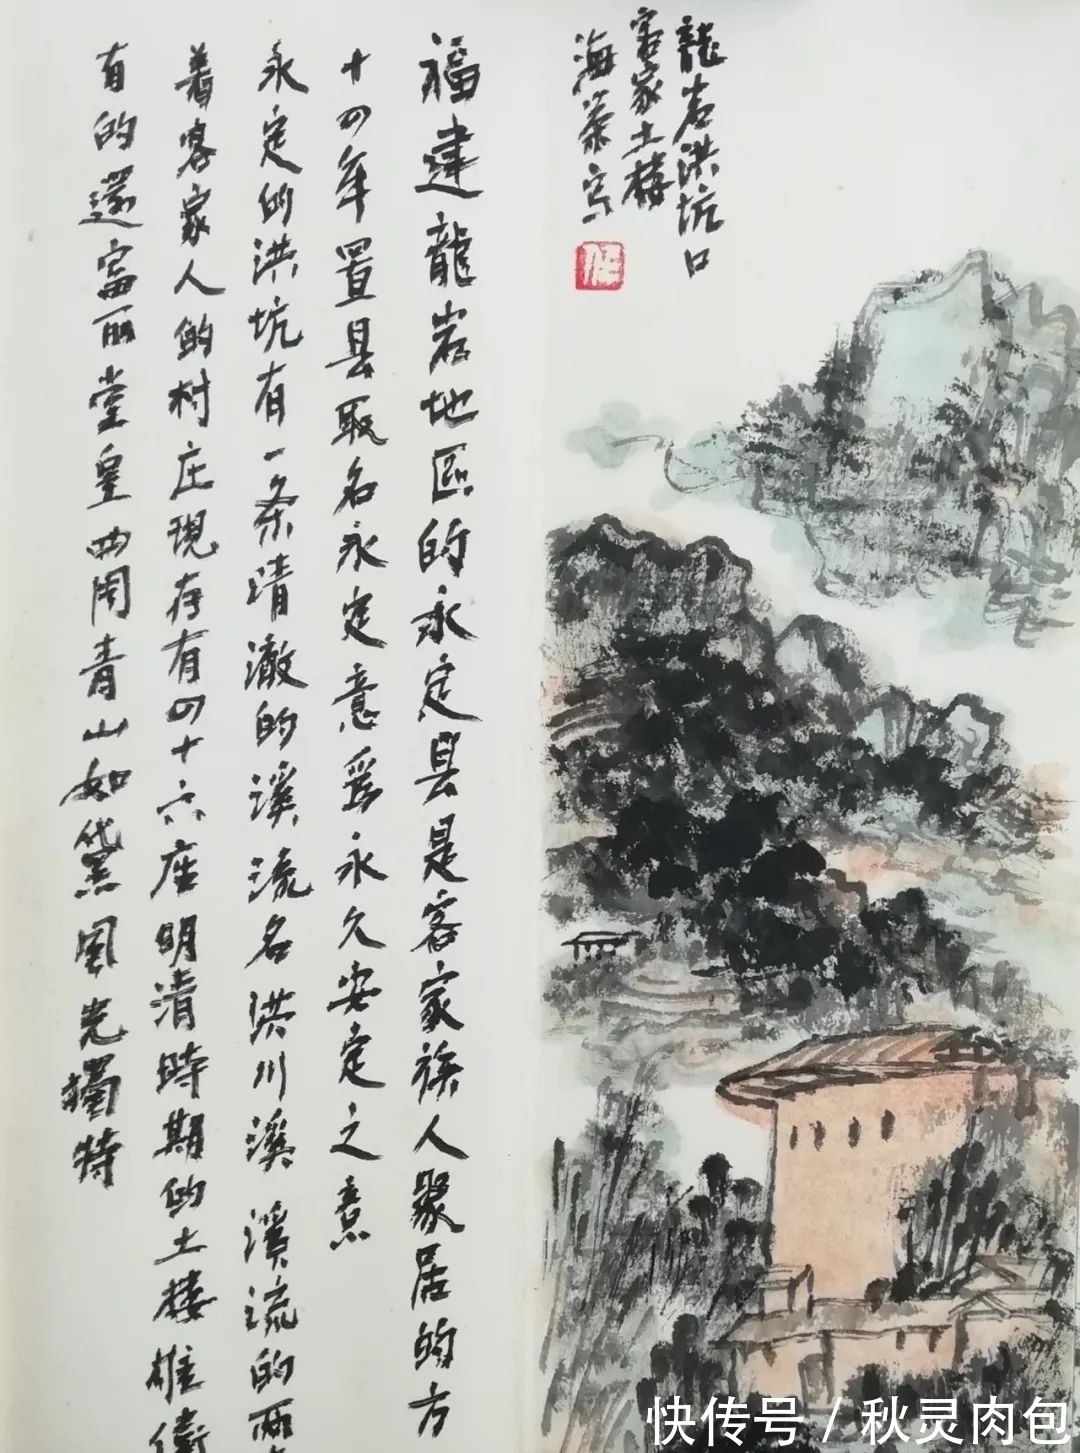 龍岩洪坑口
客家土樓
海萊寫
福建龍岩地區的永定县是客家族人聚居的方
十四年置县取名永定意爲永久安定之意
永定的洪坑有一条清澈的溪流名洪川溪 溪流的兩
着客家人的村庄現存有四十六座明清時期的土楼雄偉
有的還富丽堂皇四周青山如黛風光獨特
快传号 / 秋灵肉包